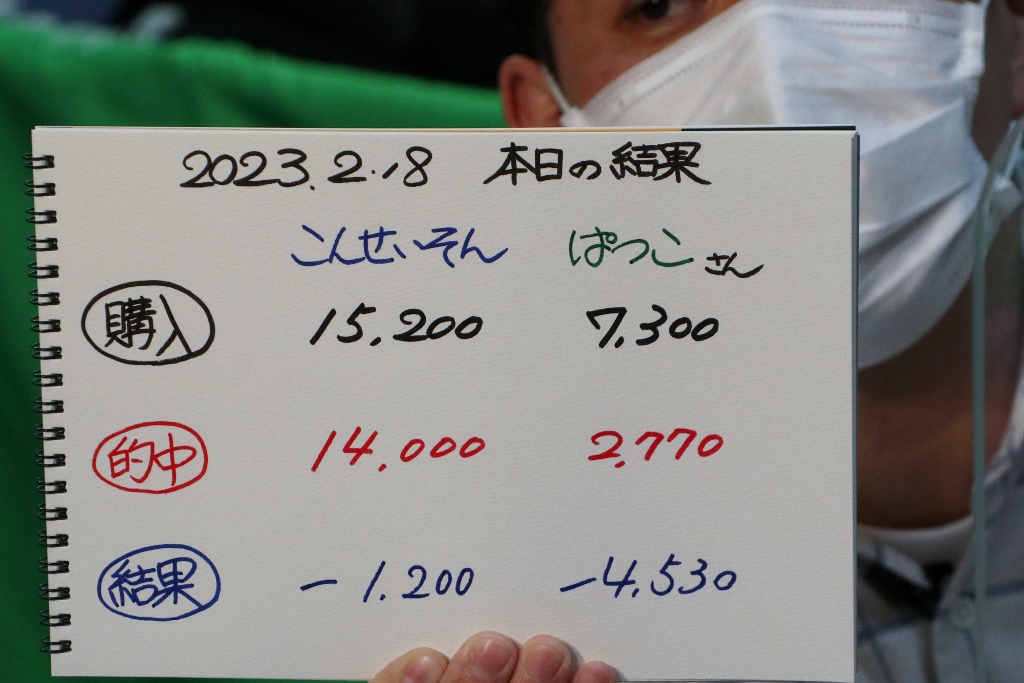 2023.2.18 本日の結果
こんせいそん ぱつこさん
購入 15,200 7,300
的中 14,000 2,770
結果 -1,200 -4,530